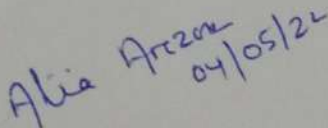 Alia Arezou
04/05/22